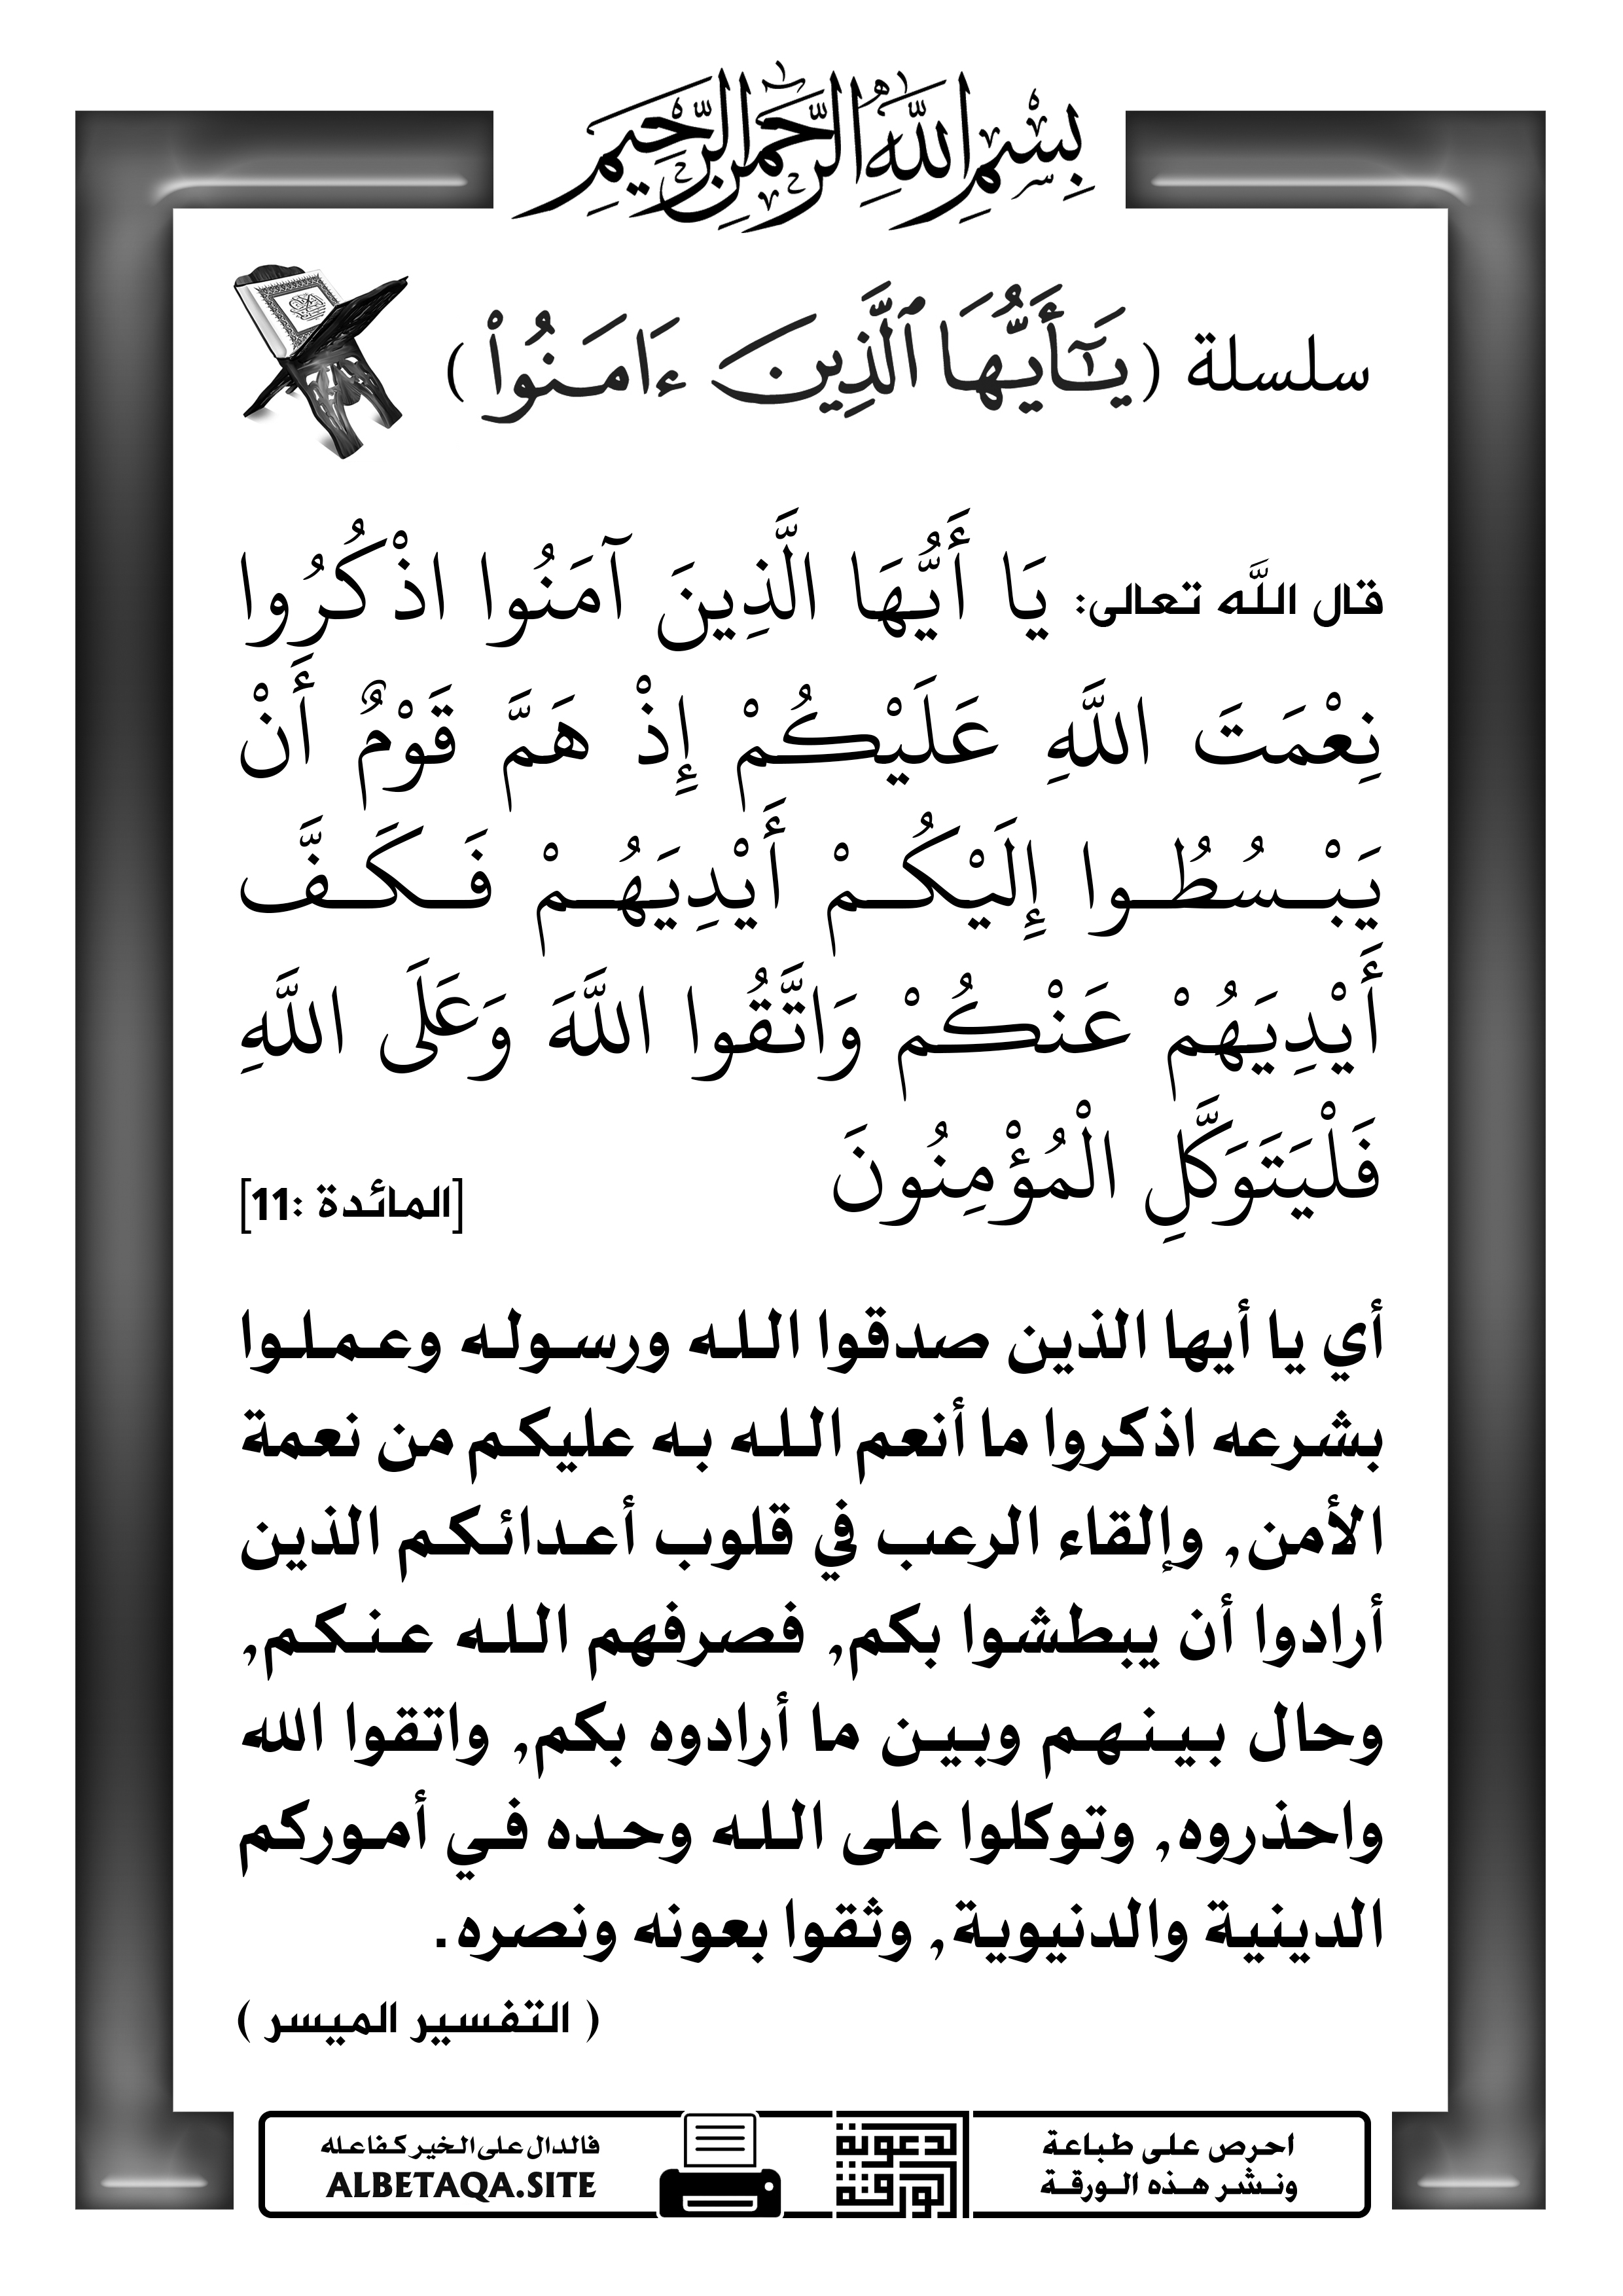 بِسْمِ اللَّهِ الرَّحْمَٰنِ الرَّحِيمِ
سلسلة (يَٰٓأَيُّهَا ٱلَّذِينَ ءَامَنُوا۟)
قال اللَّه تعالى: يَا أَيُّهَا الَّذِينَ آمَنُوا اذْكُرُوا
نِعْمَتَ اللَّهِ عَلَيْكُمْ إِذْ هَمَّ قَوْمٌ أَنْ
يَبْسُطُوا إِلَيْكُمْ أَيْدِيَهُمْ فَكَفَّ
أَيْدِيَهُمْ عَنْكُمْ وَاتَّقُوا اللَّهَ وَعَلَى اللَّهِ
فَلْيَتَوَكَّلِ الْمُؤْمِنُونَ [المائدة :11]
أي يا أيها الذين صدقوا الله ورسوله وعملوا
بشرعه اذكروا ما أنعم الله به عليكم من نعمة
الأمن, وإلقاء الرعب في قلوب أعدائكم الذين
أرادوا أن يبطشوا بكم, فصرفهم الله عنكم,
وحال بينهم وبين ما أرادوه بكم, واتقوا الله
واحذروه, وتوكلوا على الله وحده في أموركم
الدينية والدنيوية, وثقوا بعونه ونصره.
( التفسير الميسر )
احرص على طباعة
ونشر هذه الورقة
الورقة الدعوية
فالدال على الخير كفاعله
ALBETAQA.SITE